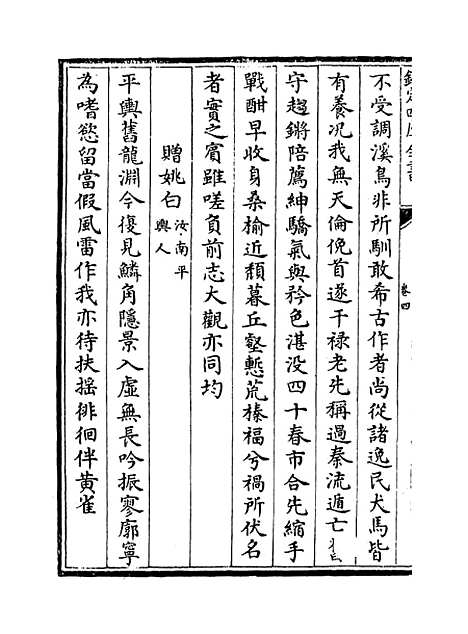 欽定四庫全書
卷四
不受調溪鳥非所馴敢希古作者尚從諸逸民犬馬皆
有養况我無天倫俛首遂干祿老先稱過秦流遁亡
守趨鏘陪薦紳驕氣與矜色湛没四十春市合先縮手
戰酣早收身桑榆近頽暮丘壑慙荒榛福兮禍所伏名
者實之賓雖嗟負前志大觀亦同均
贈姚白汝南平輿人
平輿舊龍淵今復見鱗角隱景入虛無長吟振寥廓寧
為嗜慾留當假風雷作我亦待扶揺徘徊伴黄雀